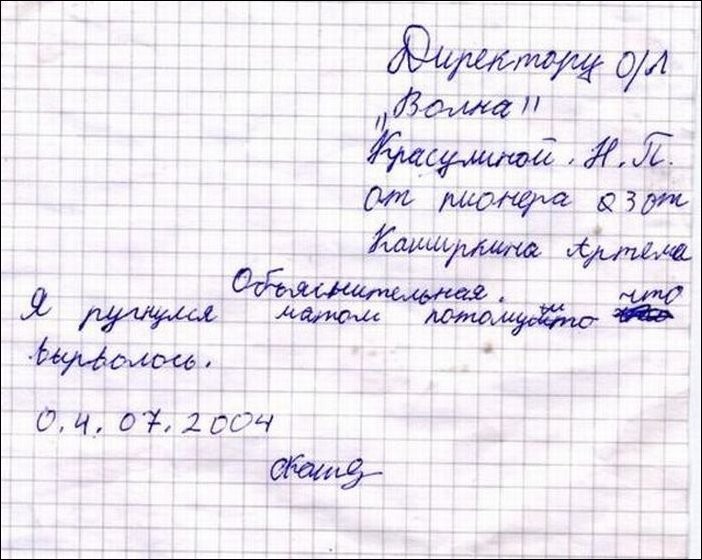 Директору О/Л
„Волна"
Красулиной. Н. П.
от пионера 23 от
Каширкина Артема
Объяснительная.
Я ругнулся матом потомуйто что
вырволось.
0.4.07.2004